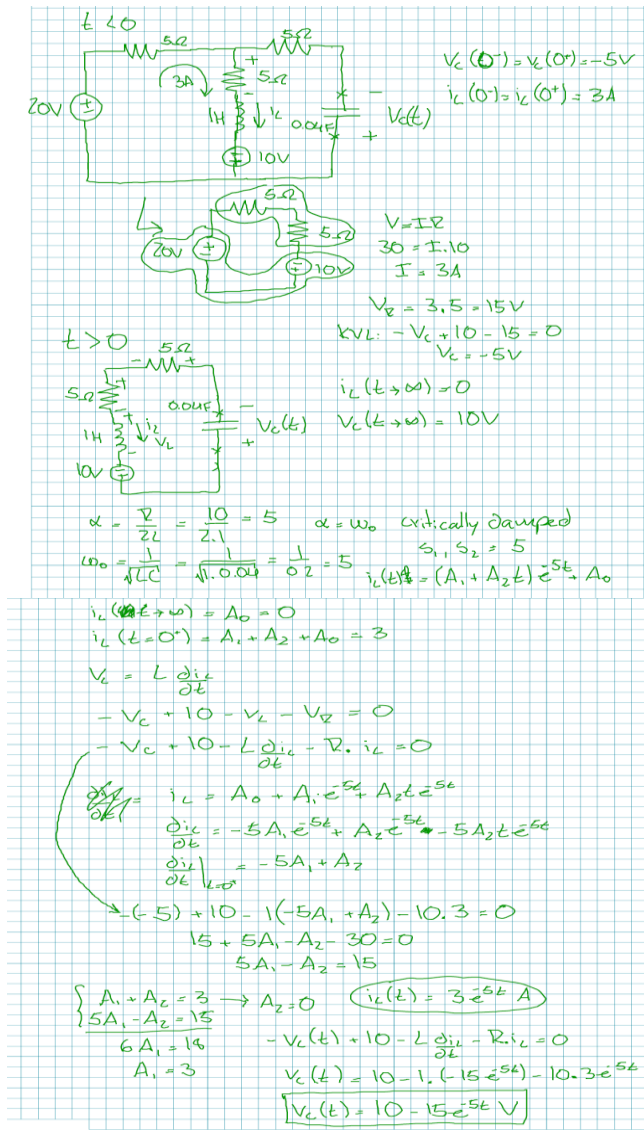 t < 0
5Ω
5Ω
+
3A
5Ω
-
20V
1H
i_L
0.04F
-
V_C(t)
+
10V
V_C(0⁻) = V_C(0⁺) = -5V
i_L(0⁻) = i_L(0⁺) = 3A
5Ω
5Ω
20V
10V
V = IR
30 = I.10
I = 3A
V_R = 3.5 = 15V
KVL: -V_C + 10 - 15 = 0
V_C = -5V
t > 0
5Ω
- +
5Ω
+
-
0.04F
+
1H
i_L
V_L
-
-
V_C(t)
+
10V
i_L(t→∞) = 0
V_C(t→∞) = 10V
α = R/2L = 10/2.1 = 5 α = ω₀ critically damped
S₁, S₂ = 5
ω₀ = 1/√LC = 1/√1.0.04 = 1/0.2 = 5 i_L(t) = (A₁ + A₂t)e^-5t + A₀
i_L(t→∞) = A₀ = 0
i_L(t=0⁺) = A₁ + A₂ + A₀ = 3
V_L = L ∂i_L/∂t
- V_C + 10 - V_L - V_R = 0
- V_C + 10 - L ∂i_L/∂t - R. i_L = 0
i_L = A₀ + A₁e^-5t + A₂te^-5t
∂i_L/∂t = -5A₁e^-5t + A₂e^-5t - 5A₂te^-5t
∂i_L/∂t |t=0⁺ = -5A₁ + A₂
-(-5) + 10 - 1(-5A₁ + A₂) - 10.3 = 0
15 + 5A₁ - A₂ - 30 = 0
5A₁ - A₂ = 15
A₁ + A₂ = 3 → A₂ = 0
5A₁ - A₂ = 15
6A₁ = 18
A₁ = 3
i_L(t) = 3e^-5t A
- V_C(t) + 10 - L ∂i_L/∂t - R.i_L = 0
V_C(t) = 10 - 1.(-15e^-5t) - 10.3e^-5t
V_C(t) = 10 - 15e^-5t V